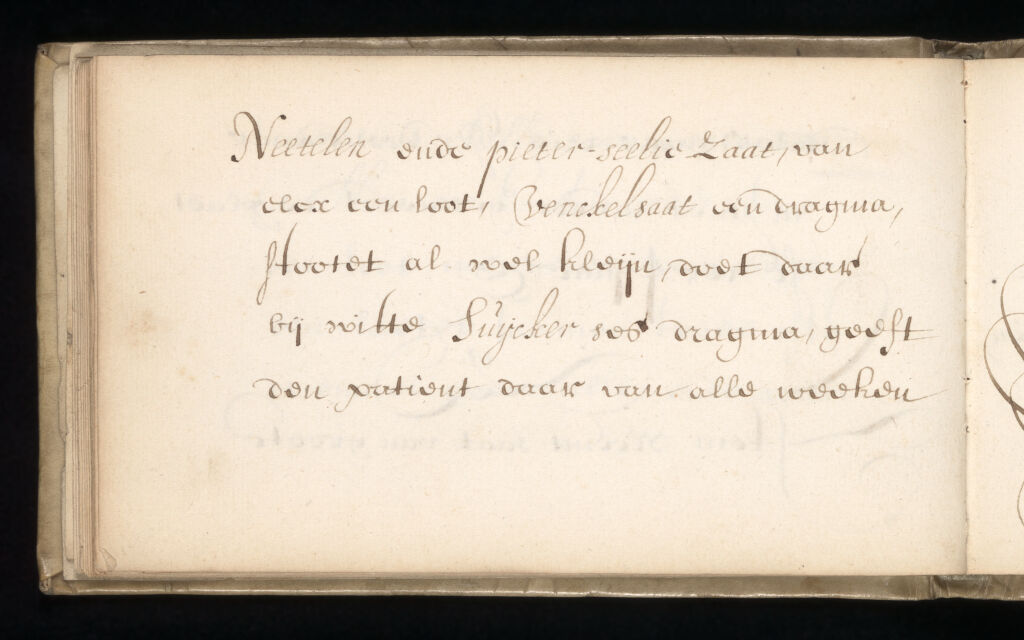 Neetelen ende pieter-seelie Zaat, van
elcx een loot, Venckelsaat een dragma,
stootet al wel kleijn, doet daar
bij witte Suijcker ses dragma, geeft
den patient daar van alle weeken